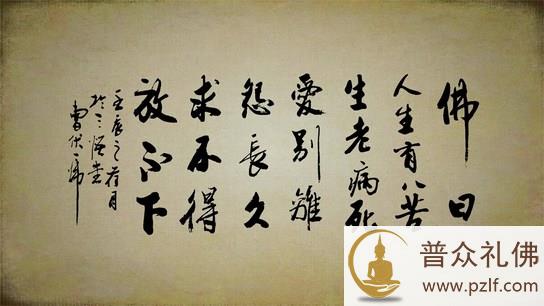 佛曰
人生有八苦
生老病死
愛别離
怨長久
求不得
放不下
壬辰之荷月
普众礼佛
www.pzlf.com